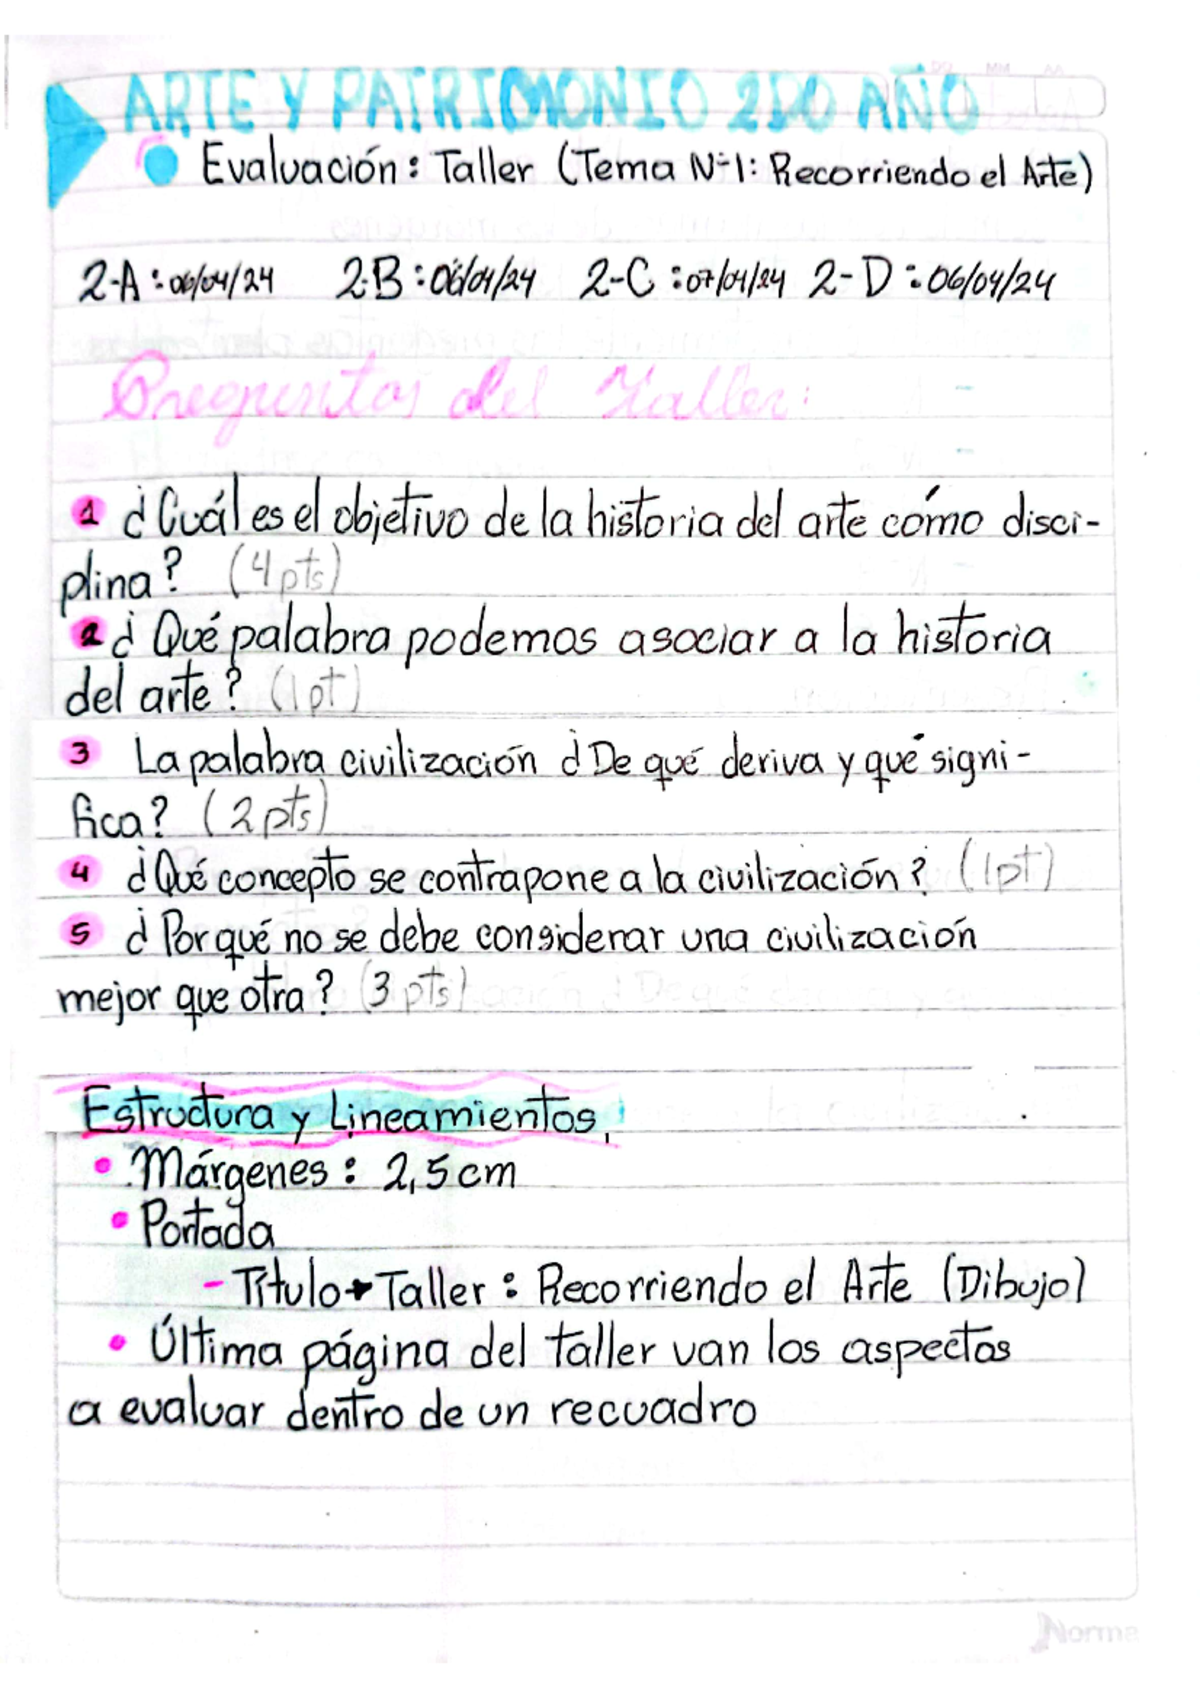 ARTE Y PATRIMONIO 2DO AÑO
Evaluación: Taller (Tema N-1: Recorriendo el Arte)
2-A: 06/04/24 2-B: 06/04/24 2-C: 07/04/24 2-D: 06/04/24
Preguntas del Taller:
1 ¿Cuál es el objetivo de la historia del arte cómo disci-
plina? (4 pts)
2 ¿Qué palabra podemos asociar a la historia
del arte? (1 pt)
3 La palabra civilización ¿De qué deriva y qué signi-
fica? (2 pts)
4 ¿Qué concepto se contrapone a la civilización? (1 pt)
5 ¿Por qué no se debe considerar una civilización
mejor que otra? (3 pts)
Estructura y Lineamientos
• Márgenes: 2,5 cm
• Portada
- Título → Taller: Recorriendo el Arte (Dibujo)
• Última página del taller van los aspectos
a evaluar dentro de un recuadro
Norma